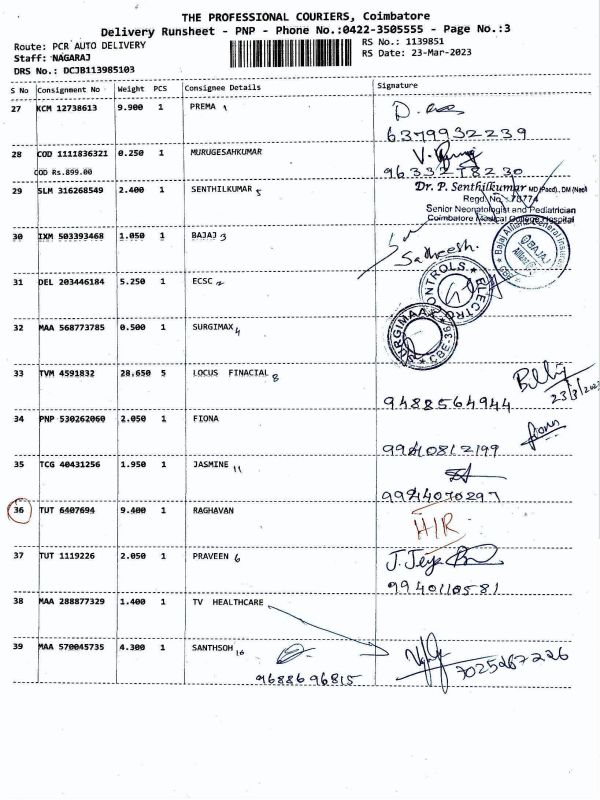 THE PROFESSIONAL COURIERS, Coimbatore
Delivery Runsheet - PNP - Phone No.:0422-3505555 - Page No.:3
Route: PCR AUTO DELIVERY
RS No.: 1139851
Staff: NAGARAJ
RS Date: 23-Mar-2023
DRS No.: DCJB113985103
S No Consignment No Weight PCS Consignee Details Signature
27 KCM 12738613 9.900 1 PREMA 1
6379932239
28 COD 1111836321 0.250 1 MURUGESAHKUMAR
COD Rs.899.00
29 SLM 316268549 2.400 1 SENTHILKUMAR 5
Dr. P. Senthilkumar MD (Paed)., DM (Neo)
Regd No.: 78774
Senior Neonatologist and Pediatrician
Coimbatore Medical College Hospital
30 IXM 503393468 1.050 1 BAJAJ 3
Satheesh.
31 DEL 203446184 5.250 1 ECSC 2
CONTROLS ELECTRO
32 MAA 568773785 0.500 1 SURGIMAX 4
33 TVM 4591832 28.650 5 LOCUS FINACIAL 8
23/3/2023
9488564944
34 PNP 530262060 2.050 1 FIONA
fiona
9940812199
35 TCG 40431256 1.950 1 JASMINE 11
9944070297
36 TUT 6407694 9.400 1 RAGHAVAN
H/R
37 TUT 1119226 2.050 1 PRAVEEN 6
9940110581
38 MAA 288877329 1.400 1 TV HEALTHCARE
39 MAA 570045735 4.300 1 SANTHSOH 10
9688696815
7025267226